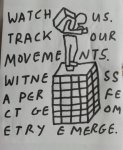 WATCH US.
TRACK OUR
MOVEMENTS.
WITNE SS
A PER FE
CT GE OM
ETRY EMERGE.